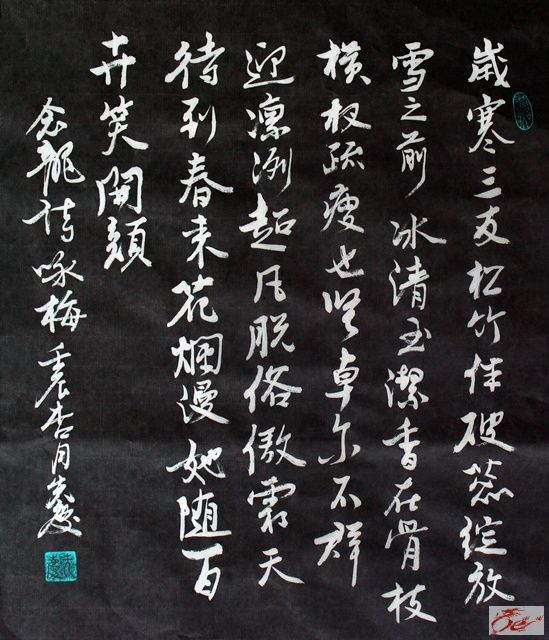 歲寒三友松竹伴破蕊綻放
雪之前冰清玉潔香在骨枝
橫枝疏瘦也堅卓尔不群
迎凛冽超凡脱俗傲霜天
待到春来花烂漫她随百
卉笑開顔
念龍詩咏梅壬辰杏月